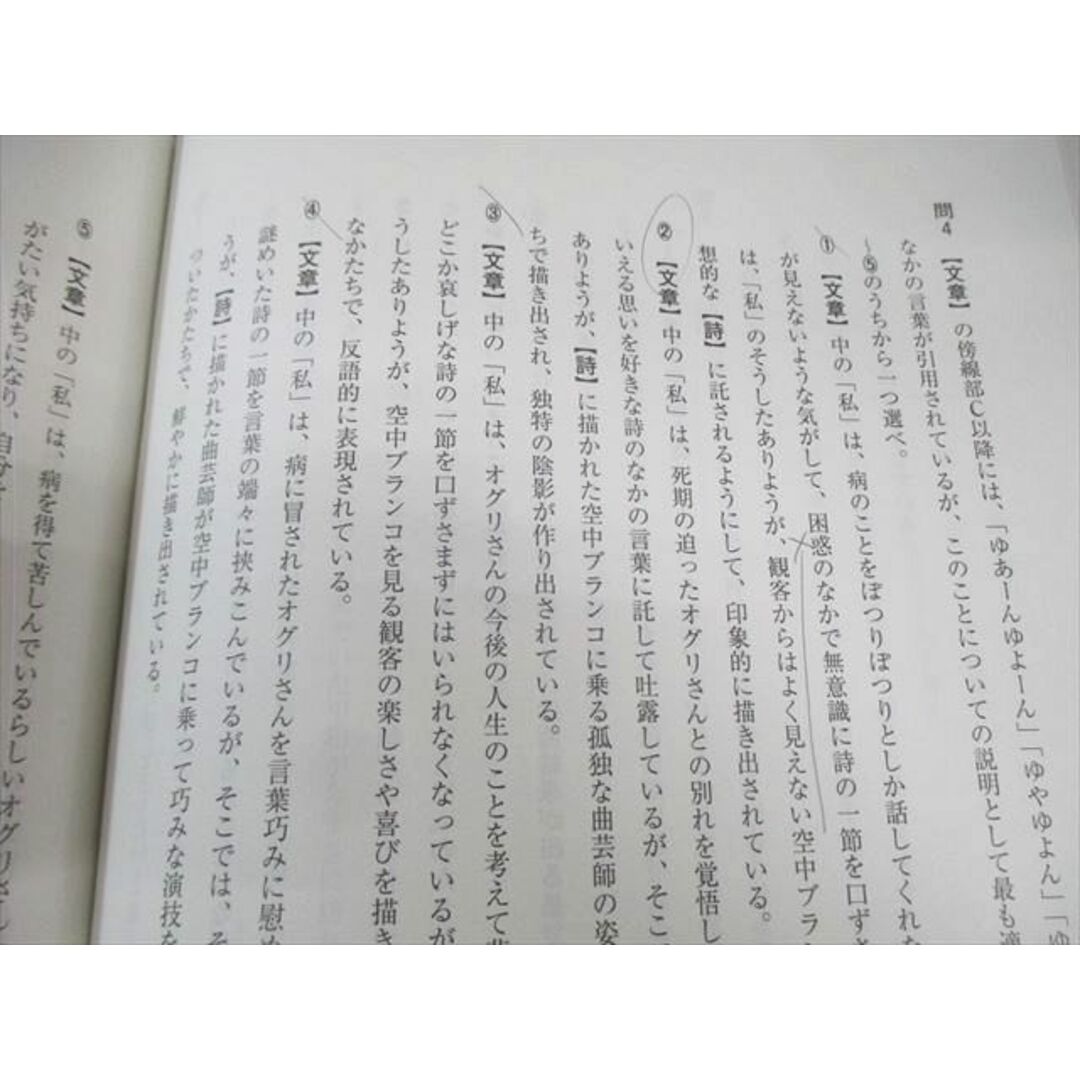 問4 【文章】の傍線部C以降には、「ゆあーんゆよーん」「ゆやゆよん」「ゆ
なかの言葉が引用されているが、このことについての説明として最も適
～⑤のうちから一つ選べ。
① 【文章】中の「私」は、病のことをぽつりぽつりとしか話してくれな
が見えないような気がして、困惑のなかで無意識に詩の一節を口ずさ
は、「私」のそうしたありようが、観客からはよく見えない空中ブラ
想的な【詩】に託されるようにして、印象的に描き出されている。
② 【文章】中の「私」は、死期の迫ったオグリさんとの別れを覚悟し
いえる思いを好きな詩のなかの言葉に託して吐露しているが、そこ
ありようが、【詩】に描かれた空中ブランコに乗る孤独な曲芸師の姿
ちで描き出され、独特の陰影が作り出されている。
③ 【文章】中の「私」は、オグリさんの今後の人生のことを考えて
どこか哀しげな詩の一節を口ずさまずにはいられなくなっているが
うしたありようが、空中ブランコを見る観客の楽しさや喜びを描き
なかたちで、反語的に表現されている。
④ 【文章】中の「私」は、病に冒されたオグリさんを言葉巧みに慰め
謎めいた詩の一節を言葉の端々に挟みこんでいるが、そこでは、そ
うが、【詩】に描かれた曲芸師が空中ブランコに乗って巧みな演技を
ついたかたちで、鮮やかに描き出されている。
⑤ 【文章】中の「私」は、病を得て苦しんでいるらしいオグリさん
がたい気持ちになり、自分